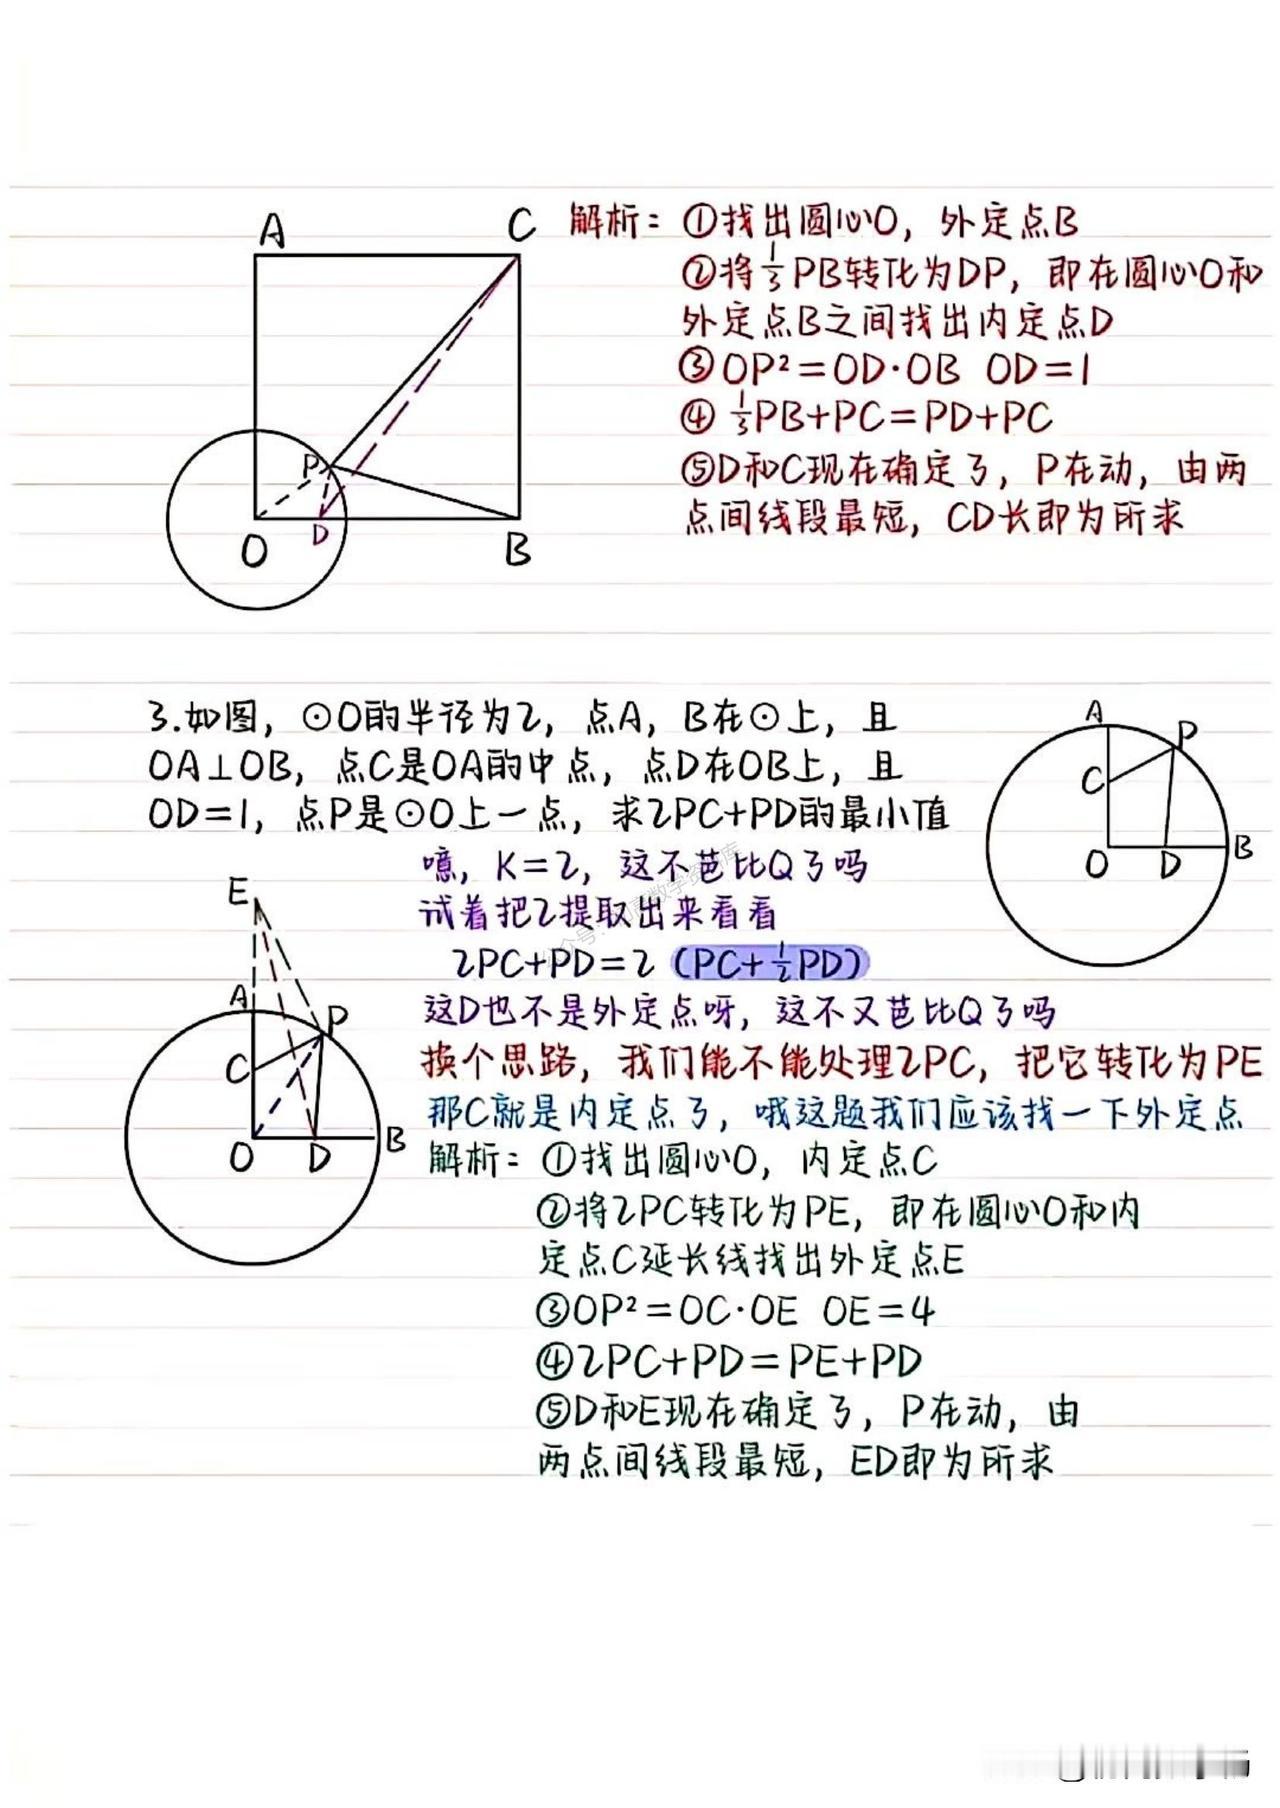 A
C
解析：①找出圆心O，外定点B
②将1/3PB转化为DP，即在圆心O和
外定点B之间找出内定点D
③OP²=OD·OB OD=1
④1/3PB+PC=PD+PC
P
⑤D和C现在确定了，P在动，由两
点间线段最短，CD长即为所求
O
D
B
3.如图，⊙O的半径为2，点A，B在⊙上，且
OA⊥OB，点C是OA的中点，点D在OB上，且
OD=1，点P是⊙O上一点，求2PC+PD的最小值
A
P
C
O
D
B
噫，K=2，这不芭比Q了吗
试着把2提取出来看看
2PC+PD=2（PC+1/2PD）
这D也不是外定点呀，这不又芭比Q了吗
换个思路，我们能不能处理2PC，把它转化为PE
那C就是内定点了，哦这题我们应该找一下外定点
E
A
P
C
O
D
B
解析：①找出圆心O，内定点C
②将2PC转化为PE，即在圆心O和内
定点C延长线找出外定点E
③OP²=OC·OE OE=4
④2PC+PD=PE+PD
⑤D和E现在确定了，P在动，由
两点间线段最短，ED即为所求